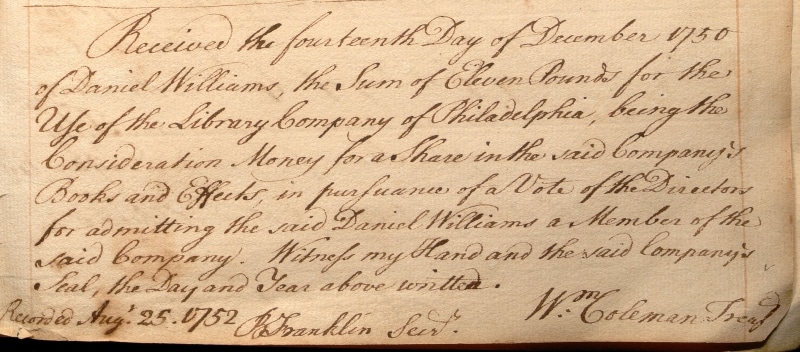 Received the fourteenth Day of December 1750
of Daniel Williams, the Sum of Eleven Pounds for the
Use of the Library Company of Philadelphia, being the
Consideration Money for a Share in the said Company's
Books and Effects, in pursuance of a Vote of the Directors
for admitting the said Daniel Williams a Member of the
said Company. Witness my Hand and the said Company's
Seal, the Day and Year above written.
Recorded Augt. 25. 1752 B Franklin Secry. Wm. Coleman Tread